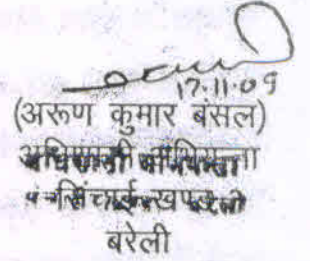 17.11.09
(अरूण कुमार बंसल)
अधिशासी अभियन्ता
सिंचाई खण्ड
बरेली